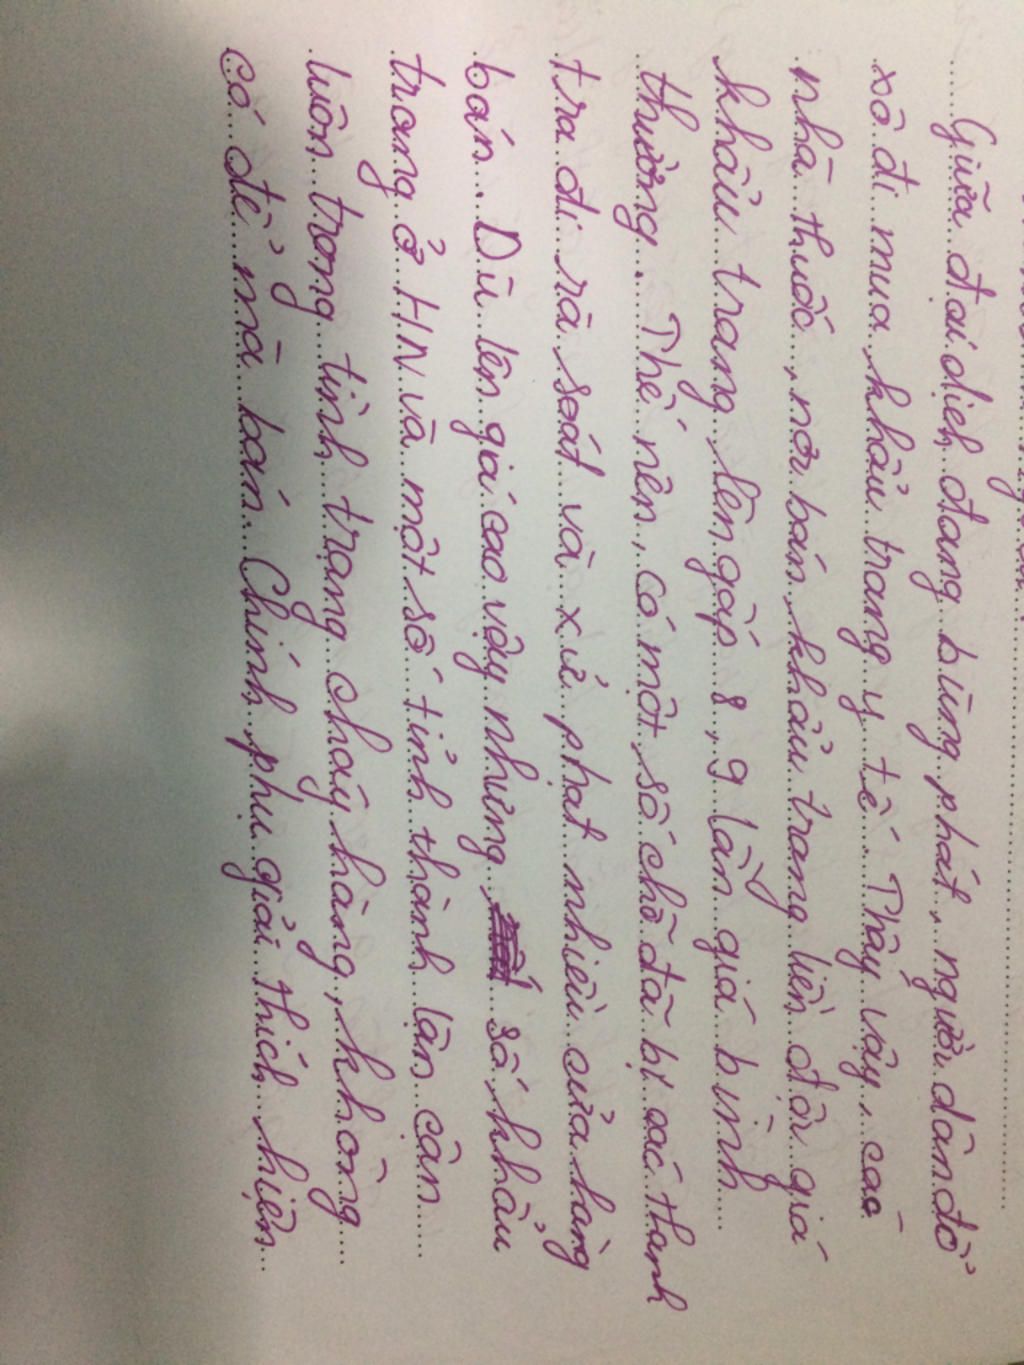 Giữa đại dịch đang bùng phát, người dân đổ
xô đi mua khẩu trang y tế. Thấy vậy, các
nhà thuốc, nơi bán khẩu trang liền đội giá
khẩu trang lên gấp 8, 9 lần giá bình
thường. Thế nên, có một số chỗ đã bị các thanh
tra đi rà soát và xử phạt nhiều cửa hàng
bán. Dù lên giá cao vậy nhưng số khẩu
trang ở HN và một số tỉnh thành lận cận
luôn trong tình trạng cháy hàng, không
có để mà bán. Chính phụ giải thích hiện